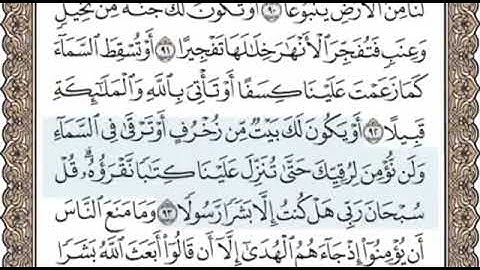 لَنَا مِنَ ٱلْأَرْضِ يَنۢبُوعًا ۝٩٠ أَوْ تَكُونَ لَكَ جَنَّةٌ مِّن نَّخِيلٍ
وَعِنَبٍ فَتُفَجِّرَ ٱلْأَنْهَٰرَ خِلَٰلَهَا تَفْجِيرًا ۝٩١ أَوْ تُسْقِطَ ٱلسَّمَآءَ
كَمَا زَعَمْتَ عَلَيْنَا كِسَفًا أَوْ تَأْتِىَ بِٱللَّهِ وَٱلْمَلَٰٓئِكَةِ
قَبِيلًا ۝٩٢ أَوْ يَكُونَ لَكَ بَيْتٌ مِّن زُخْرُفٍ أَوْ تَرْقَىٰ فِى ٱلسَّمَآءِ
وَلَن نُّؤْمِنَ لِرُقِيِّكَ حَتَّىٰ تُنَزِّلَ عَلَيْنَا كِتَٰبًا نَّقْرَؤُهُۥ ۗ قُلْ
سُبْحَانَ رَبِّى هَلْ كُنتُ إِلَّا بَشَرًا رَّسُولًا ۝٩٣ وَمَا مَنَعَ ٱلنَّاسَ
أَن يُؤْمِنُوٓا۟ إِذْ جَآءَهُمُ ٱلْهُدَىٰٓ إِلَّآ أَن قَالُوٓا۟ أَبَعَثَ ٱللَّهُ بَشَرًا